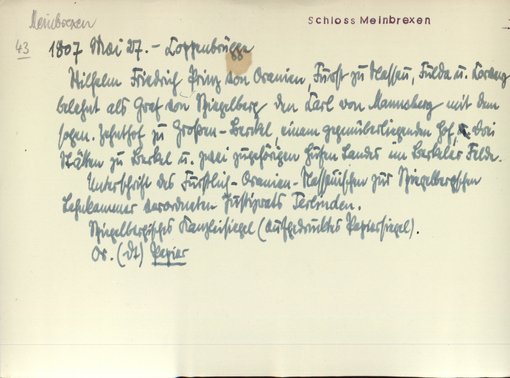 Meinbrexen
Schloss Meinbrexen
43
1807 Mai 27. - Coppenbrügge
Wilhelm Friedrich Prinz von Oranien, Fürst zu Nassau, Fulda u. Corvey
belehnt als Graf von Spiegelberg den Carl von Mannsberg mit dem
sogen. Zehnthof zu Großen-Berkel, einem gegenüberliegenden Hof, drei
Stätten zu Berkel u. zwei zugehörigen Hufen Landes im Berkeler Felde.
Unterschrift des Fürstlich-Oranien-Nassauischen zur Spiegelbergschen
Lehnkammer verordneten Justizrats Terlinden.
Spiegelbergisches Kanzleisiegel (aufgedrucktes Papiersiegel).
Or. (dt) Papier